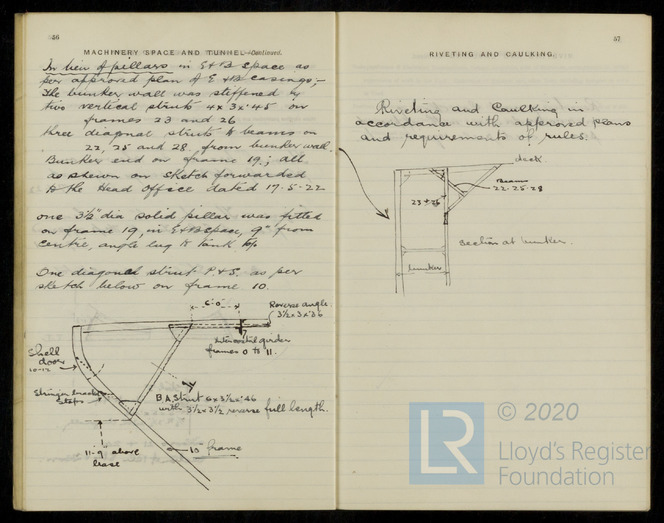 56
MACHINERY SPACE AND TUNNEL—Continued.
In lieu of pillars in E&B Space as
per approved plan of E & B casings,—
The bunker wall was stiffened by
two vertical struts 4 x 3 x .45 on
frames 23 and 26
three diagonal struts to beams on
22, 25 and 28, from bunker wall.
Bunker end on frame 19; all
as shewn on sketch forwarded
to the Head Office dated 17-5-22
one 3½" dia solid pillar was fitted
on frame 19, in E&B space, 9" from
centre, angle lug to tank top.
One diagonal strut P & S. as per
sketch below on frame 10.
6'-0"
Reverse angle
3½ x 3 x .36
Intercostal girder
frames 0 to 11.
Shell
door
10-12
Stringer bracket
B.A. Strut 6 x 3½ x .46
with 3½ x 3½ reverse full length.
11-9" above
base
10 frame
57
RIVETING AND CAULKING
Riveting and Caulking in
accordance with approved plans
and requirements of rules.
deck.
Beams
22-25-28
23 + 26
Section at bunker.
bunker
© 2020
LR
Lloyd's Register
Foundation